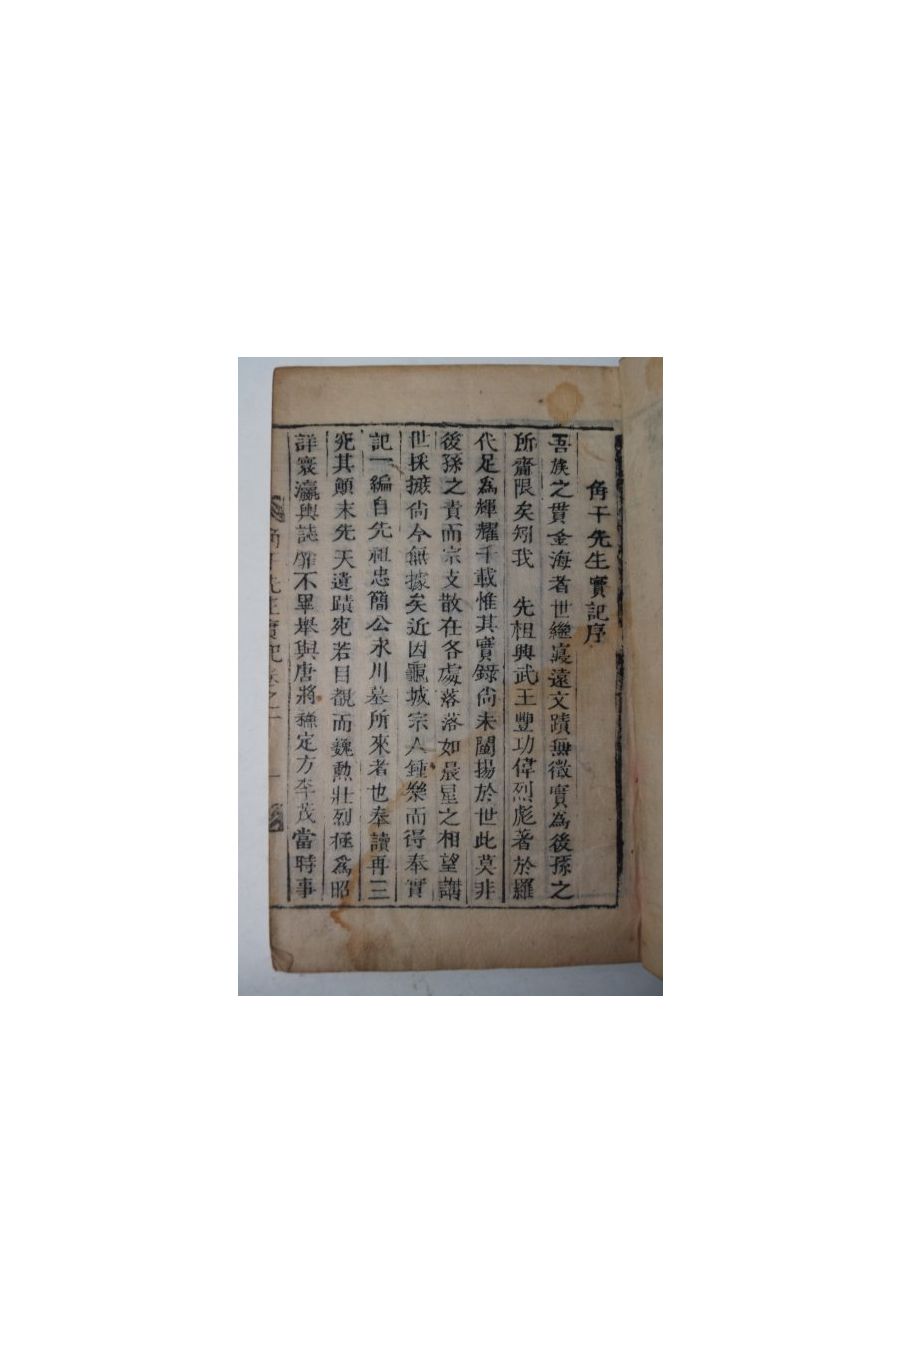 角干先生實記序
吾族之貫金海者世繼寖遠文蹟無徵實爲後孫之
所齎限矣矧我 先祖興武王豐功偉烈彪著於羅
代足爲輝耀千載惟其實錄尙未闡揚於世此莫非
後孫之責而宗支散在各處落落如晨星之相望講
世採摭尙今無據矣近因龜城宗人鍾樂而得奉實
記一編自先祖忠簡公永川墓所來者也奉讀再三
究其顚末先天遺蹟宛若目覩而巍勲壯烈極爲昭
詳寔瀛輿誌靡不畢擧與唐將蘇定方李茂當時事
角干先生實記卷之一